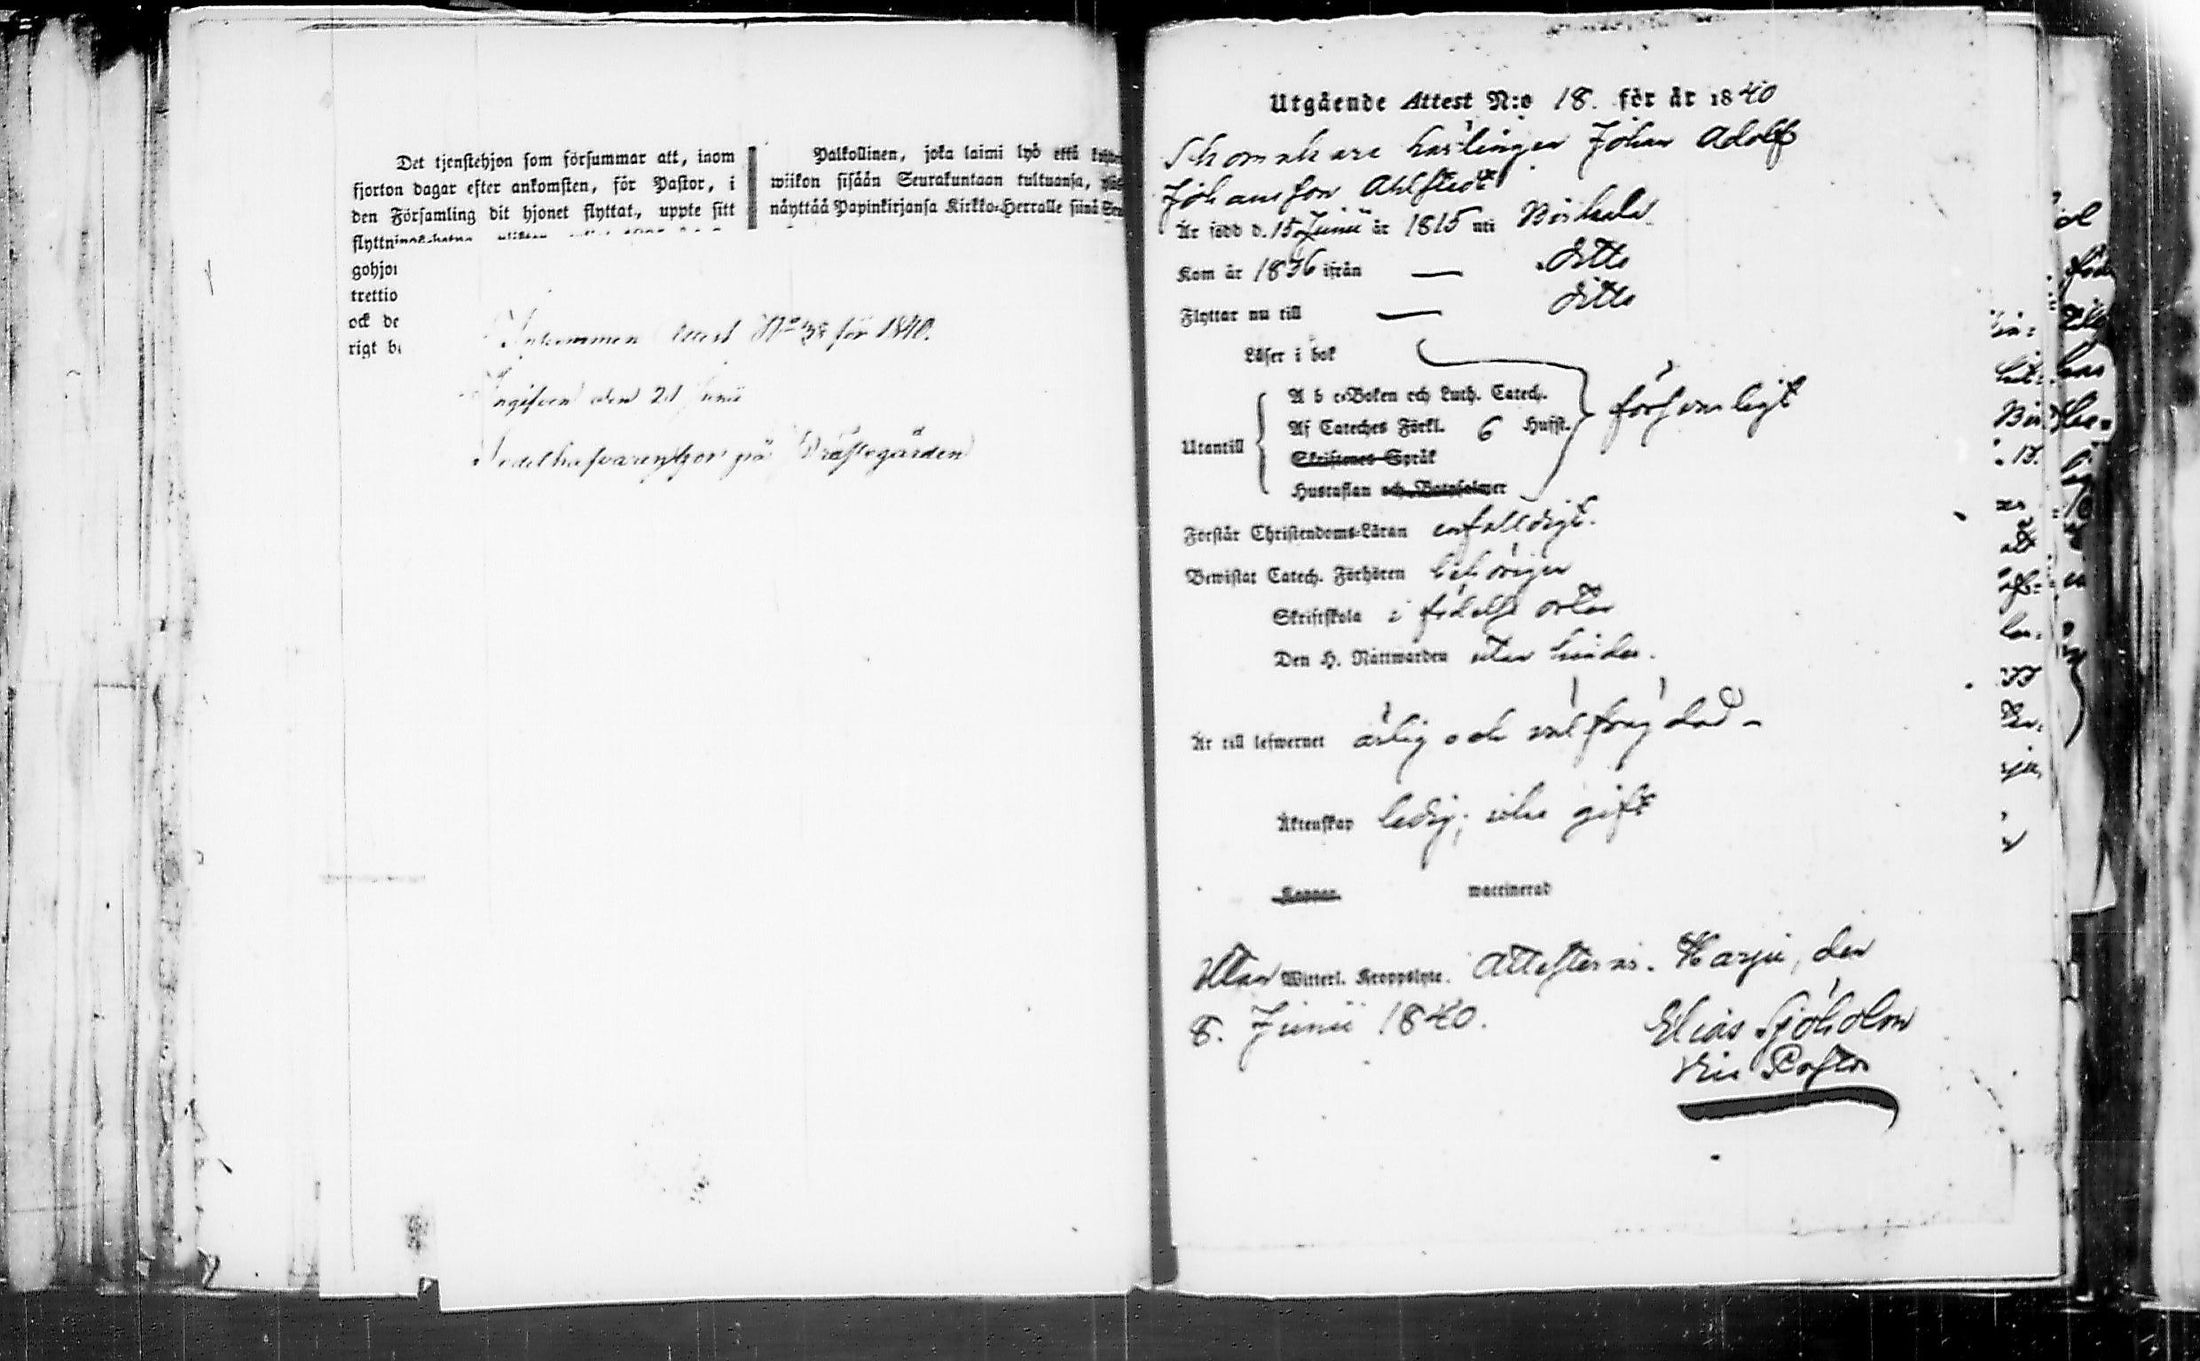 Det tjenstehjon som försummar att, inom
fjorton dagar efter ankomsten, för Pastor, i
den Församling dit hjonet flyttat, uppte sitt
gohjon
trettio
ock de
rigt b
Palkollinen, joka laimi lyö että
wiikon sisään Seurakuntaan tultuansa,
näyttää Papinkirjansa Kirkko-Herralle siinä
Inkommen Attest No 38 för 1840.
Ingifven den 21 Junii
på Prästegården
Utgående Attest N:o 18. för år 1840
Skomakare Lärlingen Johan Adolf
Johansson Ahlstedt
Är född d. 15 Junii år 1815 uti Birkala
Kom år 1836 ifrån — ditto
Flyttar nu till — ditto
Läser i bok
Utantill
A b c-Boken och Luth. Catech.
Af Cateches Förkl. 6 Hufst.
Skriftenes Språk
Hustaflan och Botpsalmer
försvarligt
Förstår Christendoms-Läran enfalldigt.
Bewistat Catech. Förhören behörigen
Skriftskola i födelse orten
Den H. Nattwarden utan hinder.
Är till lefwernet ärlig och väl frejdad —
Äktenskap ledig; icke gift
Koppor waccinerad
Utan Witterl. Kroppslyte. Attesteras. Harju, den
8. Junii 1840.
Elias Sjöholm
Vice Pastor